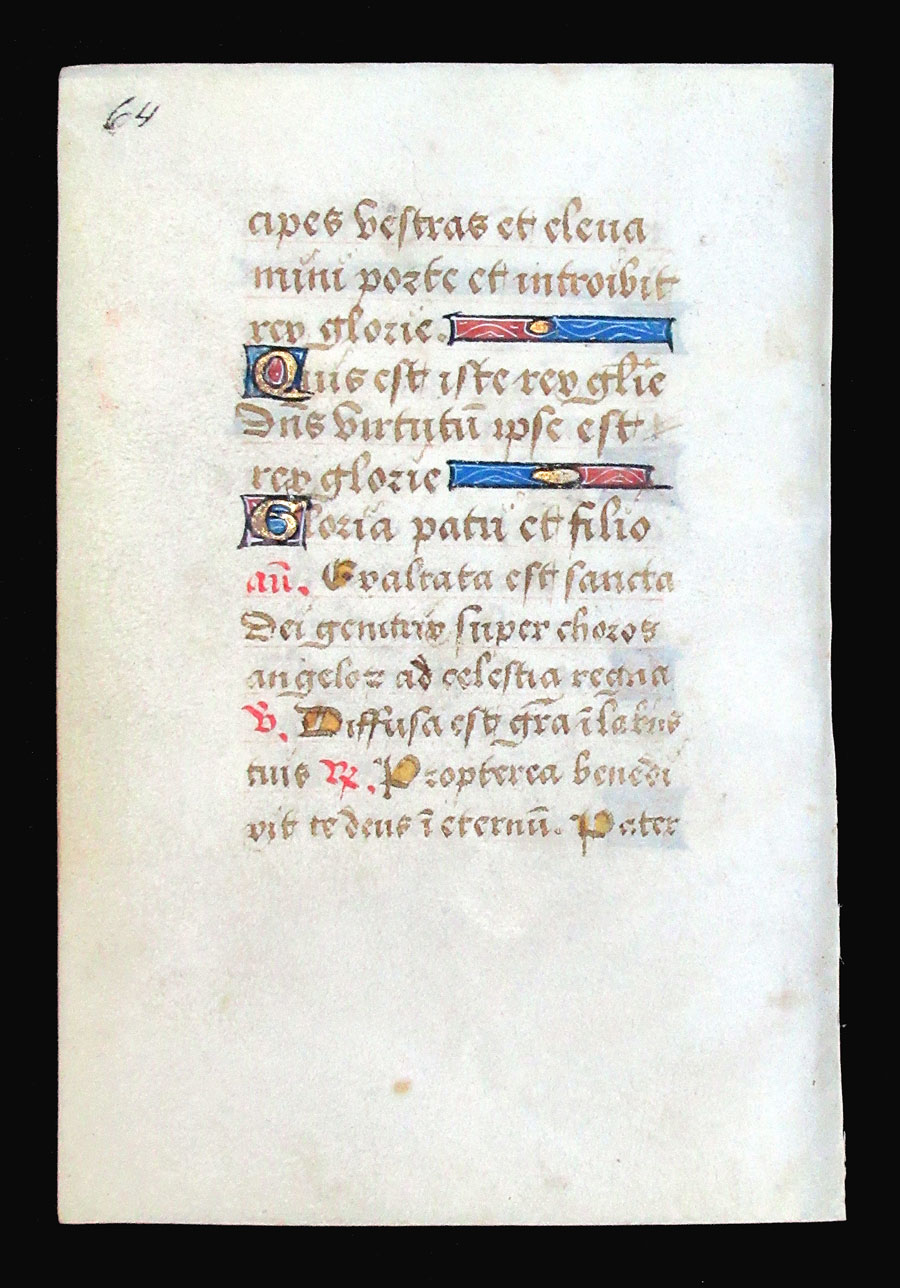 64
cipes vestras et eleua
mini porte et introibit
rex glorie.
Quis est iste rex glie
Dñs virtutũ ipse est
rex glorie
Gloria patri et filio
añ. Exaltata est sancta
Dei genitrix super choros
angeloꝝ ad celestia regna
℣. Diffusa est gr̃a ĩ labiis
tuis ℟. Propterea benedi
xit te deus ĩ eternũ. Pater